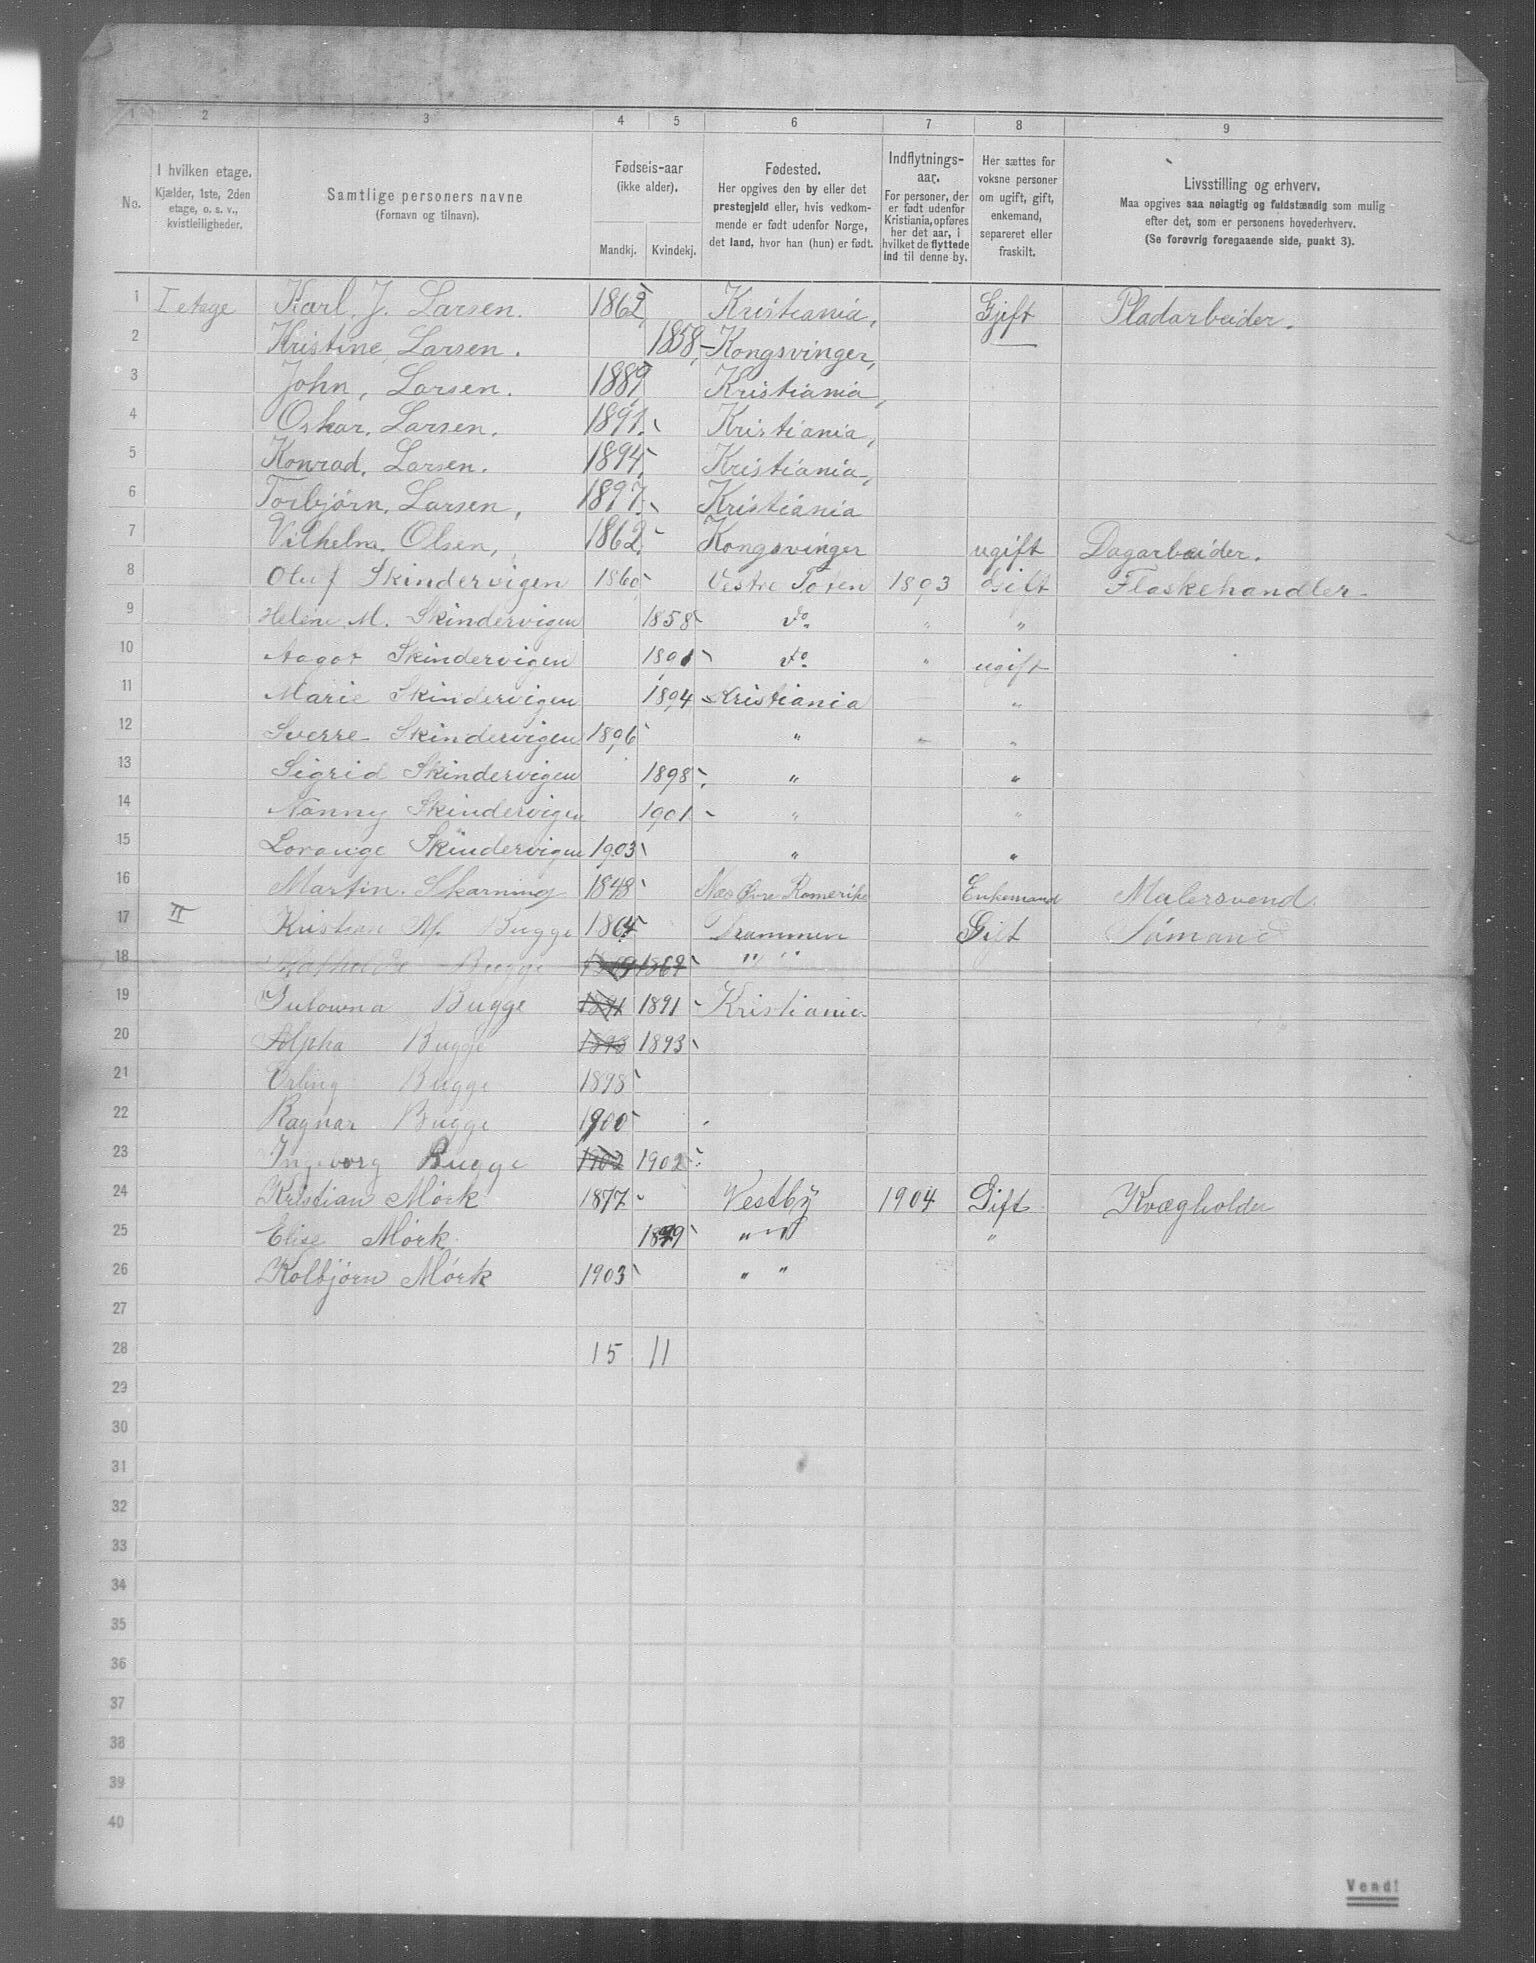 1 2 3 4 5 6 7 8 9
No. I hvilken etage. Kjælder, 1ste, 2den etage, o. s. v., kvistleiligheder. Samtlige personers navne (Fornavn og tilnavn). Fødsels-aar (ikke alder). Mandkj. Kvindekj. Fødested. Her opgives den by eller det prestegjeld eller, hvis vedkommende er født udenfor Norge, det land, hvor han (hun) er født. Indflytnings-aar. For personer, der er født udenfor Kristiania, opføres her det aar, i hvilket de flyttede ind til denne by. Her sættes for voksne personer om ugift, gift, enkemand, separeret eller fraskilt. Livsstilling og erhverv. Maa opgives saa nøiagtig og fuldstændig som mulig efter det, som er personens hovederhverv. (Se forøvrig foregaaende side, punkt 3).
1 I etage Karl. J. Larsen. 1862 Kristiania, Gjift Pladarbeider.
2 Kristine Larsen. 1858, - Kongsvinger,
3 John, Larsen. 1889 Kristiania,
4 Oskar, Larsen. 1891 Kristiania,
5 Konrad, Larsen. 1894 Kristiania,
6 Torbjørn, Larsen, 1897 Kristiania
7 Vilhelm, Olsen, 1862 Kongsvinger ugift Dagarbeider.
8 Oluf Skindervigen 1860 Vestre Toten 1893 Gift Flaskehandler
9 Helene M. Skindervigen 1858 do " "
10 Aagot Skindervigen 1891 do " ugift
11 Marie Skindervigen 1894 Kristiania "
12 Sverre Skindervigen 1896 " - "
13 Sigrid Skindervigen 1898 " "
14 Nanny Skindervigen 1901 " "
15 Lorange Skindervigen 1903 " "
16 Martin. Skarning 1848 Næs Øvre Romerike Enkemand Malersvend.
17 II Kristian M. Bugge 1864 Drammen Gift Sømand
18 Bugge 1869 1869 " "
19 Julowna Bugge 1891 1891 Kristiania
20 Alpha Bugge 1893 1893
21 Erling Bugge 1898
22 Ragnar Bugge 1900
23 Ingeborg Bugge 1902 1902
24 Kristian Mörk 1877 Vestby 1904 Gift Kvægholder
25 Elise Mörk 1879 " " "
26 Kolbjörn Mörk 1903 " "
27
28 15 11
29
30
31
32
33
34
35
36
37
38
39
40
Vend!